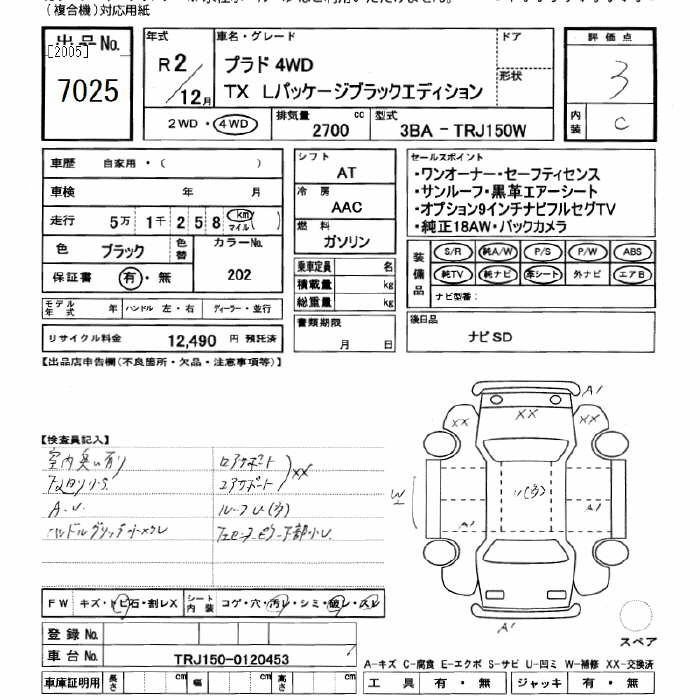 (複合機)対応用紙
出品No. [2005]
7025
年式 R2/12月
車名・グレード
プラド 4WD
TX Lパッケージブラックエディション
ドア
形状
2WD・4WD 排気量 2700 cc 型式 3BA - TRJ150W
評価点
3
内装 C
車歴 自家用・( )
車検 年 月
走行 5万 1千 2 5 8 km マイル ( )
色 ブラック 色替 カラーNo. 202
保証書 有・無
モデル年式 年 ハンドル 左・右 ディーラー・並行
リサイクル料金 12,490 円 預託済
シフト AT
冷房 AAC
燃料 ガソリン
乗車定員 名
積載量 kg
総重量 kg
書類期限
月 日
セールスポイント
・ワンオーナー・セーフティセンス
・サンルーフ・黒革エアーシート
・オプション9インチナビフルセグTV
・純正18AW・バックカメラ
装備品 S/R 純A/W P/S P/W ABS
純TV 純ナビ 革シート 外ナビ エアB
ナビ型番:
後日品
ナビSD
【出品店申告欄(不良箇所・欠品・注意事項等)】
【検査員記入】
室内臭い有り
A・U
コアサポート
コアサポート
XX
ルーフU(ウ)
A1
XX XX XX
A1
W
A1
A1
A1
FW キズ・トビ石・割レX シート内装 コゲ・穴・汚レ・シミ・破レ・スレ
登録No.
車台No. TRJ150-0120453
車庫証明用 長さ cm 幅 cm 高さ cm
スペア
A-キズ C-腐食 E-エクボ S-サビ U-凹ミ W-補修 XX-交換済
工具 有・無 ジャッキ 有・無